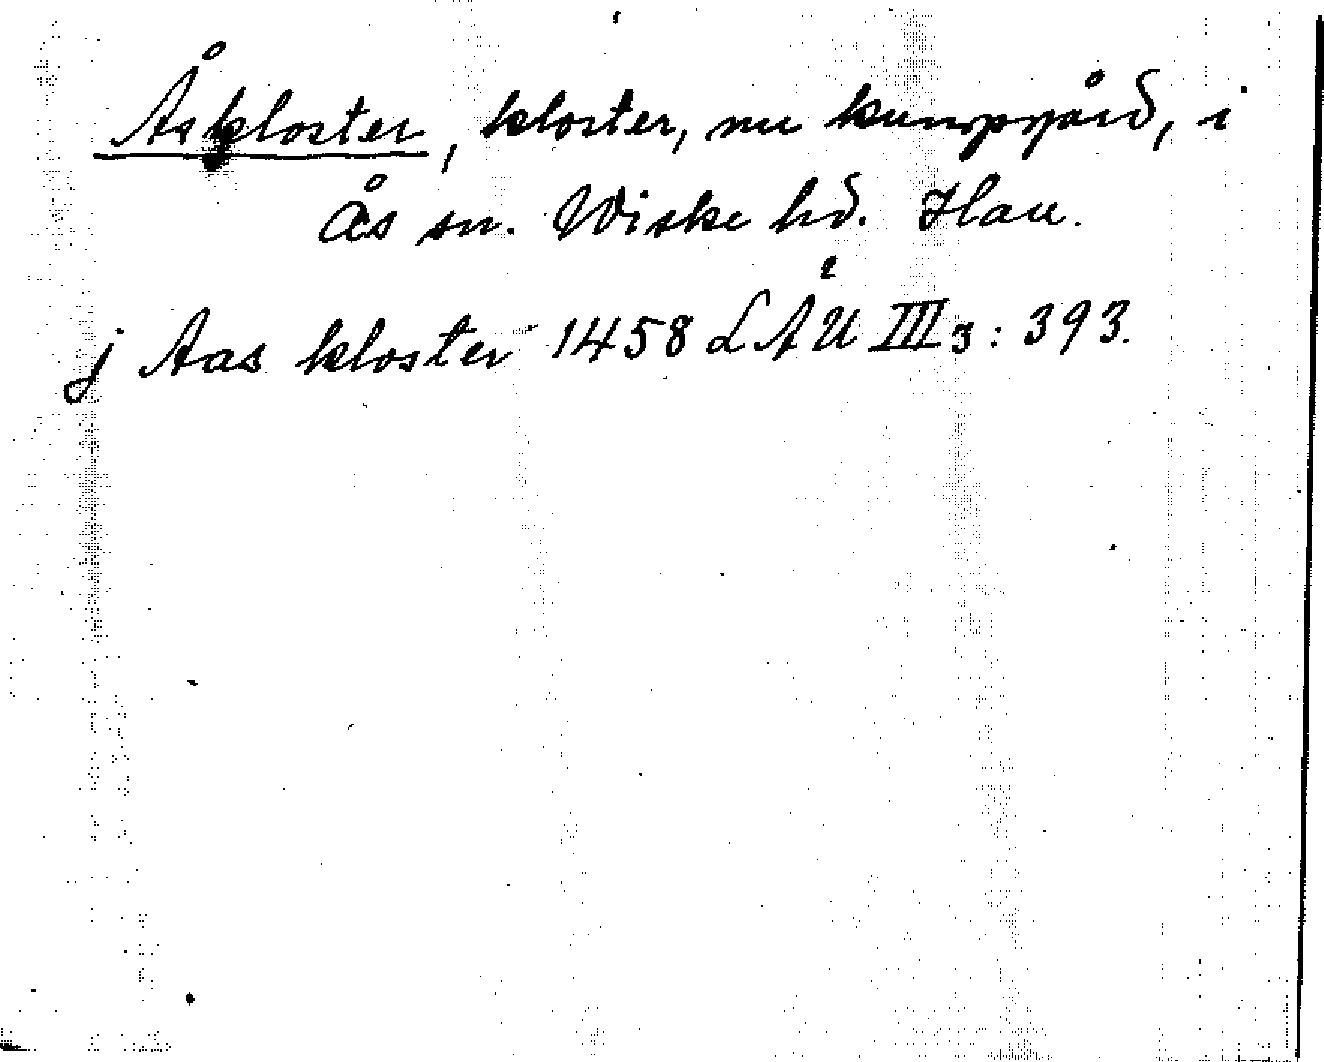 Åskloster, kloster, nu kungsgård, i
Ås sn. Wiske hd. Hall.
j Aas kloster 1458 LÅU III 3: 393.